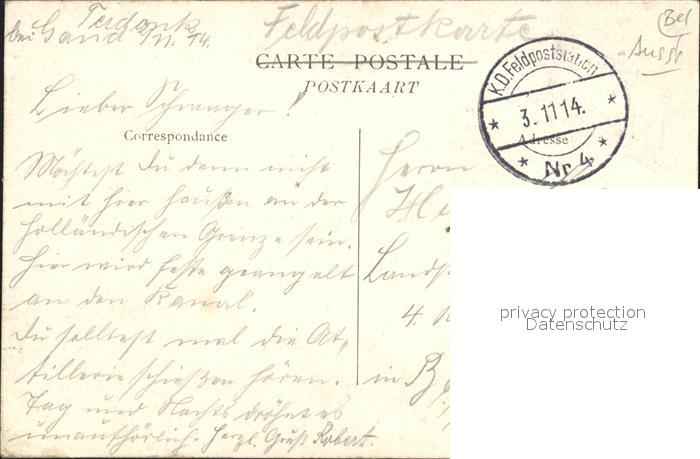 Terdonk
bei Gand 2/11. 14.
Feldpostkarte
Bel
Ausst
CARTE POSTALE
POSTKAART
K.D. Feldpoststation
3.11.14.
Nr 4
Lieber Schwager!
Correspondance
Adresse
Möchtest Du denn nicht
mit hier haußen an der
holländischen Grenze sein.
Hier wird feste geangelt
an den Kanal.
Du solltest mal die Ar-
tillerie schießen hören.
Tag und Nachts dröhnt es
unaufhörlich. Herzl. Gruß Robert.
Herrn
Landst
4.
in B
privacy protection
Datenschutz